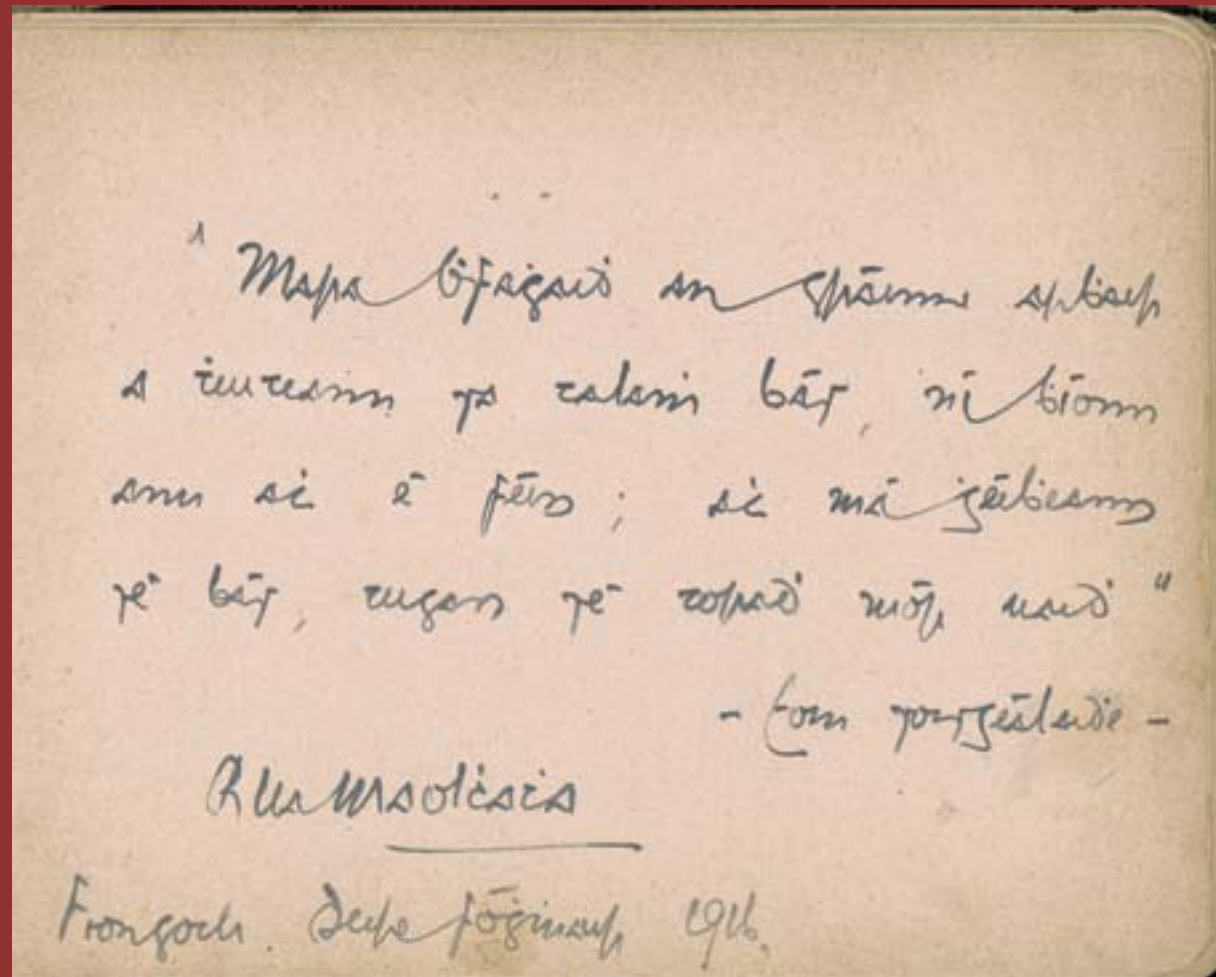 "Mara ḃfagaiḋ an gráinne arḃair
a ṫuiteann sa talaṁ bás, ní ḃíonn
ann aċ é féin; aċ má ġéiḃeann
sé bás, tugann sé toraḋ mór uaiḋ"
- Eoin soisgéalaiḋe -
R Ua Maolċaṫa
Frongoch. Deire fóġṁair 1916.